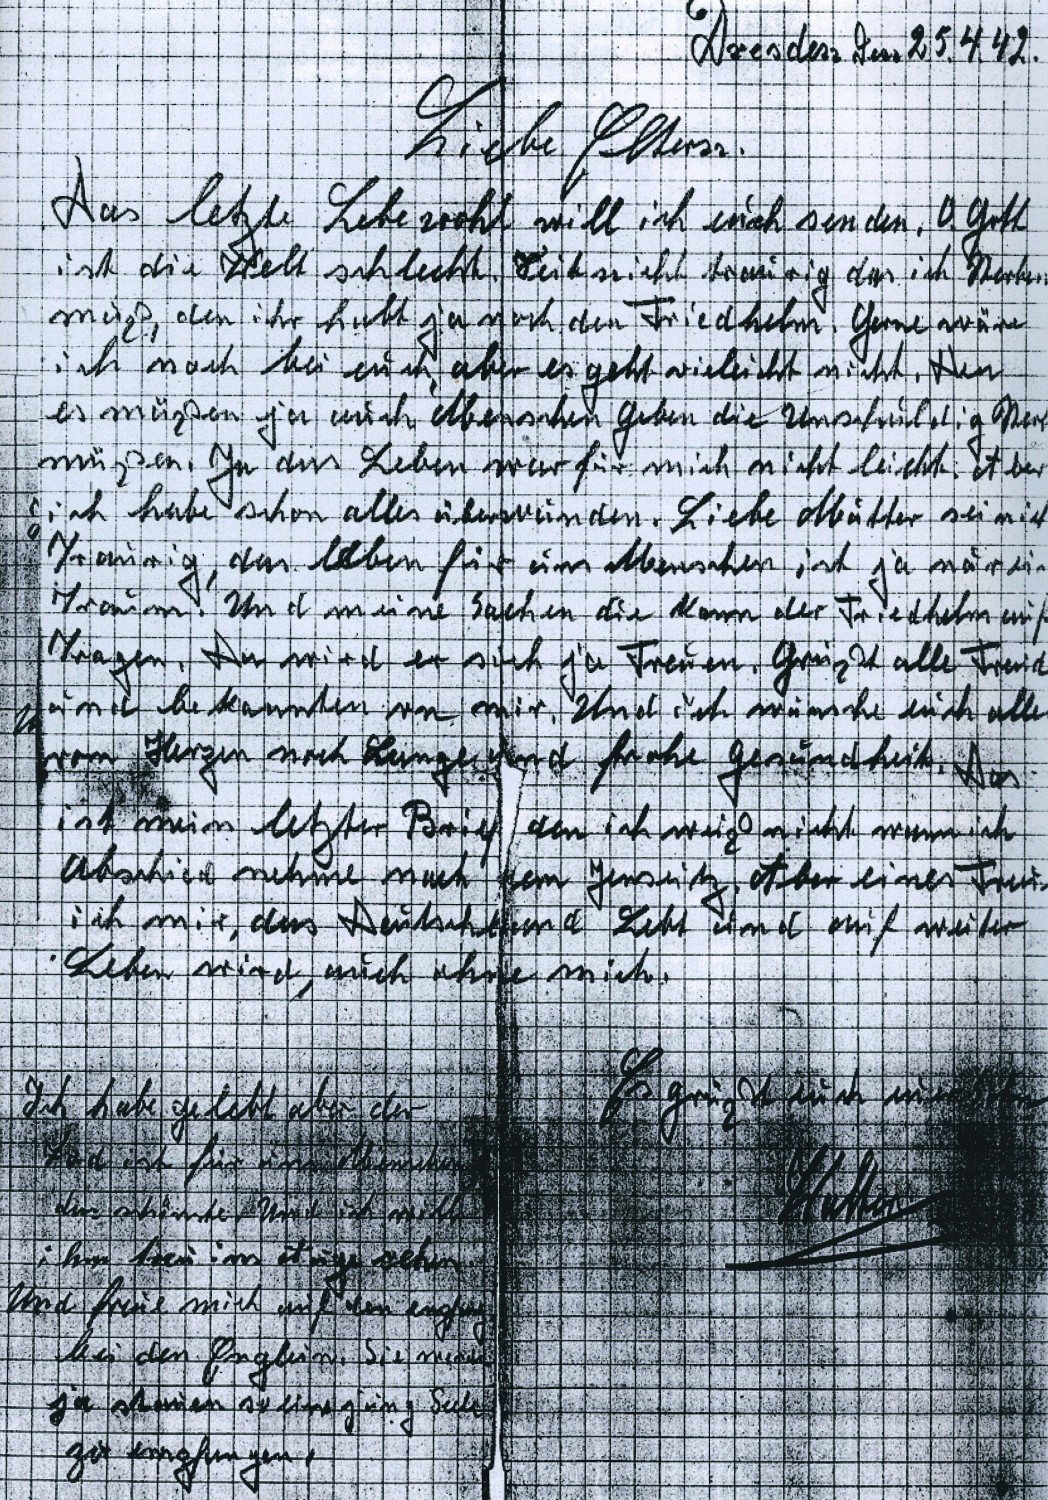 Dresden den 25.4.42.
Liebe Eltern.
Das letzte Lebewohl will ich euch senden. O. Gott
ist die Welt schlecht. Seit nicht traurig das ich sterben
muß, den ihr habt ja noch den Friedhelm. Gerne wäre
ich noch bei euch, aber es geht vieleicht nicht. Den
es müßen ja auch Menschen geben die Unschuldig Ster
müßen. Ja das Leben war für mich nicht leicht. Aber
ich habe schon alles überwunden. Liebe Mutter sei nich
Traurig, das leben für uns Menschen ist ja nur ein
Traum. Und meine Sachen die kann der Friedhelm auf
Tragen. Da wird er sich ja Freuen. Grüßt alle Freund
und bekannten von mir. Und ich wünsche euch allen
vom Herzen noch Lange und frohe Gesundheit. Das
ist mein letzter Brief den ich weiß nicht wann ich
Abschied nehme nach dem Jenseitz. Aber eines Freu
ich mir, das Deutschland Lebt und auf weiter
Leben wird, auch ohne mich.
Es grüßt euch euer Sohn
Ich habe gelebt aber der
Tod ist für uns Menschen
das schönste. Und ich will
ihm treu ins Auge sehen.
Und freue mich auf den empfang
bei den Englein. Sie werden
ja staunen so eine jung Seele
zu empfangen.